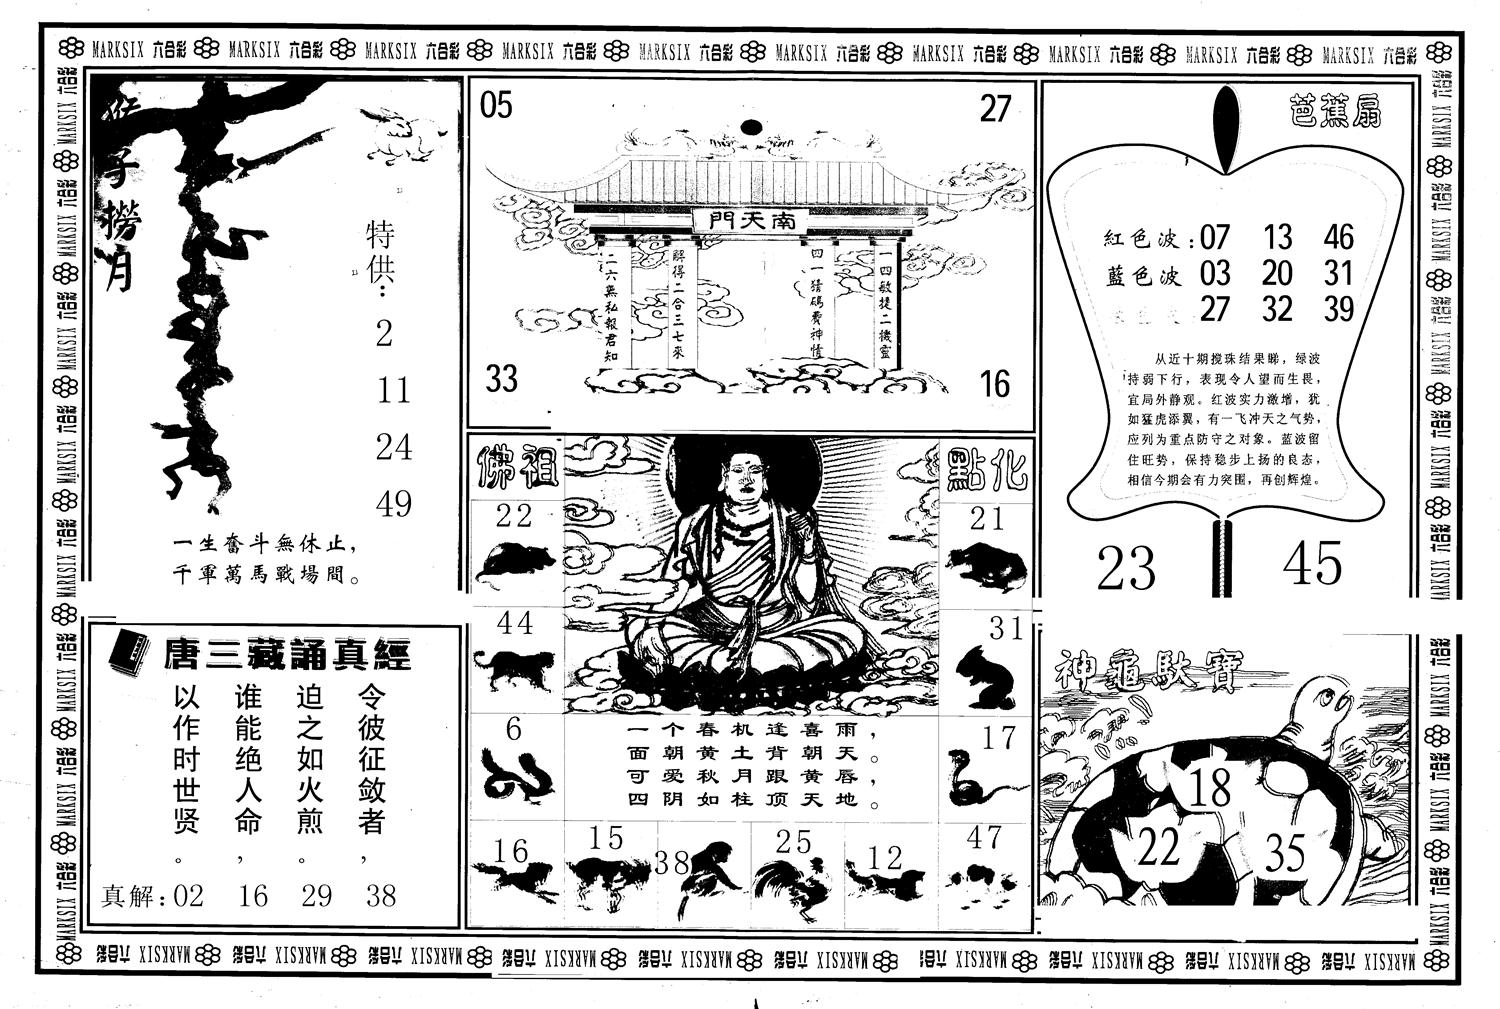 MARKSIX 六合彩 MARKSIX 六合彩 MARKSIX 六合彩 MARKSIX 六合彩 MARKSIX 六合彩 MARKSIX 六合彩 MARKSIX 六合彩 MARKSIX 六合彩 MARKSIX 六合彩 MARKSIX 六合彩
猴子撈月
特供：
2
11
24
49
一生奮斗無休止，
千軍萬馬戰場間。
05
27
南天門
一四敏捷二機靈
四一猜碼費神情
解得二合三七來
二六無私報君知
33
16
芭蕉扇
紅色波：07 13 46
藍色波 03 20 31
27 32 39
从近十期搅珠结果睇，绿波
持弱下行，表现令人望而生畏，
宜局外静观。红波实力激增，犹
如猛虎添翼，有一飞冲天之气势，
应列为重点防守之对象。蓝波留
住旺势，保持稳步上扬的良态，
相信今期会有力突围，再创辉煌。
23
45
唐三藏誦真經
令彼征敛者，
迫之如火煎。
谁能绝人命，
以作时世贤。
真解：02 16 29 38
佛祖
點化
22
21
44
31
6
17
一个春机逢喜雨，
面朝黄土背朝天。
可爱秋月跟黄唇，
四阴如柱顶天地。
16
15
38
25
12
47
神龜馱寶
18
22
35
MARKSIX 六合彩 MARKSIX 六合彩 MARKSIX 六合彩 MARKSIX 六合彩 MARKSIX 六合彩 MARKSIX 六合彩 MARKSIX 六合彩 MARKSIX 六合彩 MARKSIX 六合彩 MARKSIX 六合彩